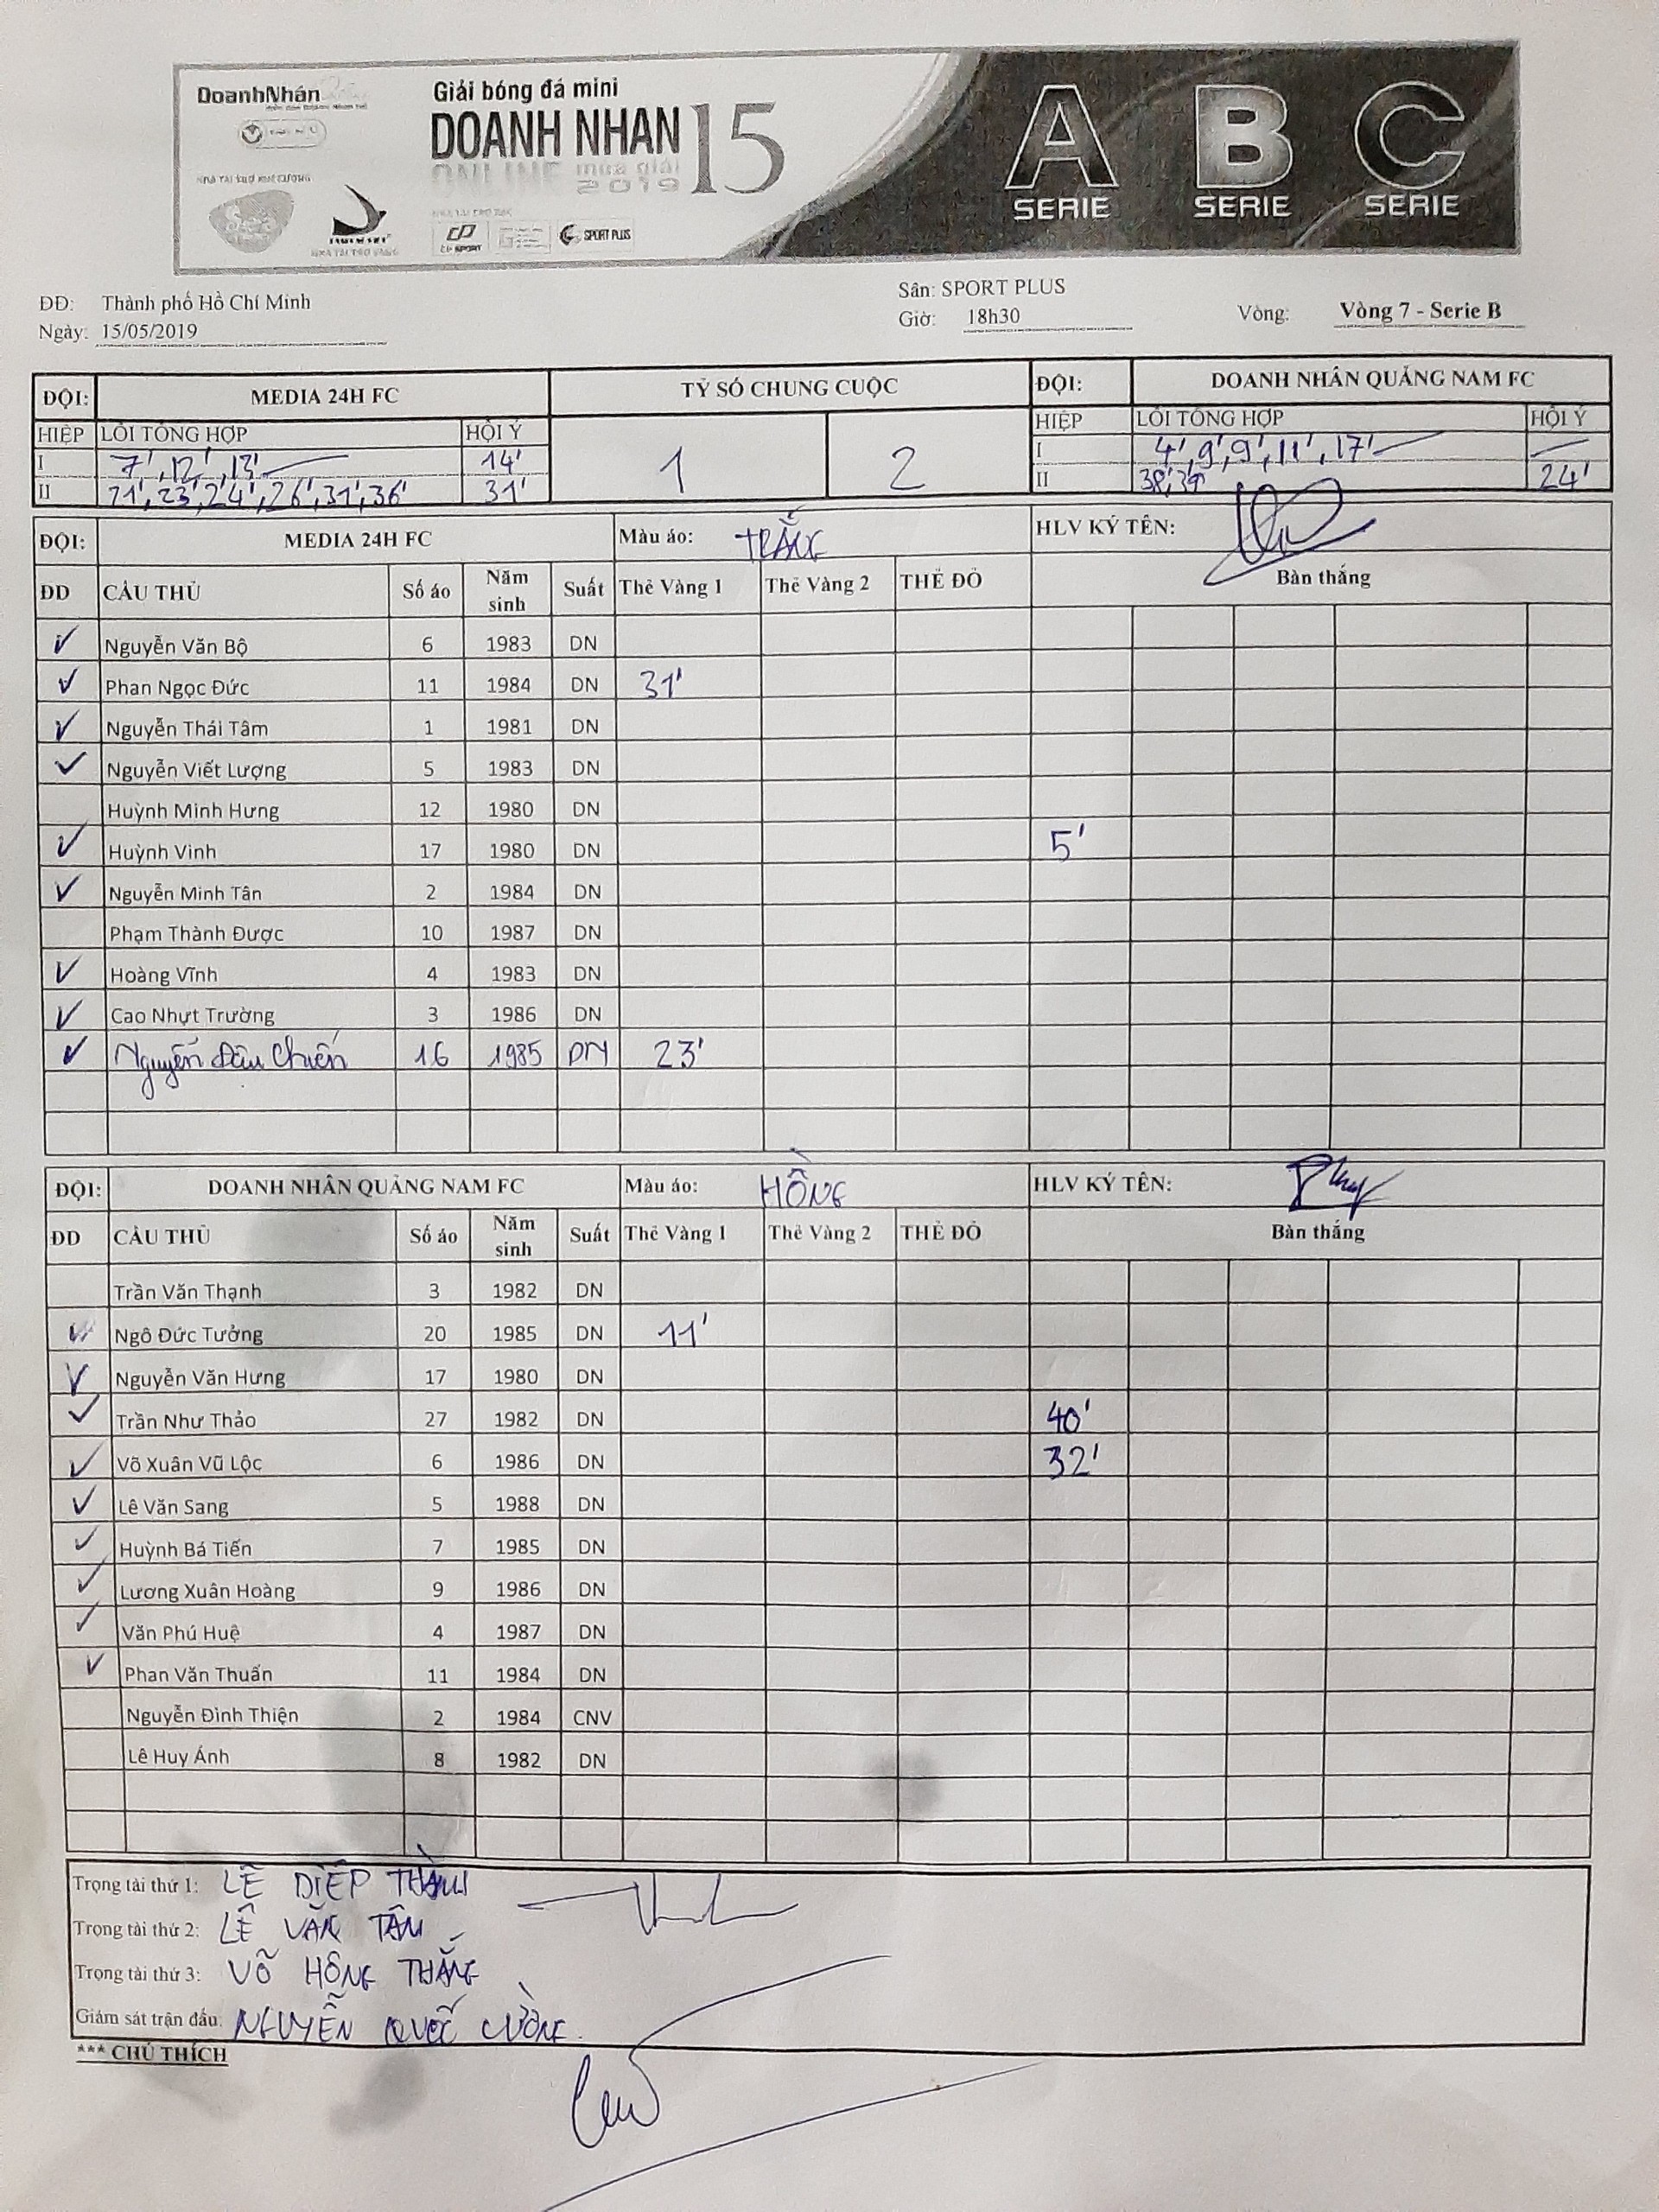 DoanhNhân
Giải bóng đá mini
DOANH NHAN 15
ONLINE mùa giải
2019
SPORT PLUS
A B C
SERIE SERIE SERIE
ĐĐ: Thành phố Hồ Chí Minh
Sân: SPORT PLUS
Ngày: 15/05/2019
Giờ: 18h30
Vòng: Vòng 7 - Serie B
ĐỘI: MEDIA 24H FC TỶ SỐ CHUNG CUỘC ĐỘI: DOANH NHÂN QUẢNG NAM FC
HIỆP LỖI TỔNG HỢP HỘI Ý 1 2 HIỆP LỖI TỔNG HỢP HỘI Ý
I 7', 12', 13' 14' I 4', 9', 9', 11', 17'
II 21', 23', 24', 26', 31', 36' 31' II 38', 39' 24'
ĐỘI: MEDIA 24H FC Màu áo: TRẮNG HLV KÝ TÊN:
ĐD CẦU THỦ Số áo Năm sinh Suất Thẻ Vàng 1 Thẻ Vàng 2 THẺ ĐỎ Bàn thắng
Nguyễn Văn Bộ 6 1983 DN
Phan Ngọc Đức 11 1984 DN 31'
Nguyễn Thái Tâm 1 1981 DN
Nguyễn Viết Lượng 5 1983 DN
Huỳnh Minh Hưng 12 1980 DN
Huỳnh Vinh 17 1980 DN 5'
Nguyễn Minh Tân 2 1984 DN
Phạm Thành Được 10 1987 DN
Hoàng Vĩnh 4 1983 DN
Cao Nhựt Trường 3 1986 DN
Nguyễn Đậu Chiến 16 1985 DN 23'
ĐỘI: DOANH NHÂN QUẢNG NAM FC Màu áo: HỒNG HLV KÝ TÊN:
ĐD CẦU THỦ Số áo Năm sinh Suất Thẻ Vàng 1 Thẻ Vàng 2 THẺ ĐỎ Bàn thắng
Trần Văn Thạnh 3 1982 DN
Ngô Đức Tưởng 20 1985 DN 11'
Nguyễn Văn Hưng 17 1980 DN
Trần Như Thảo 27 1982 DN 40'
Võ Xuân Vũ Lộc 6 1986 DN 32'
Lê Văn Sang 5 1988 DN
Huỳnh Bá Tiến 7 1985 DN
Lương Xuân Hoàng 9 1986 DN
Văn Phú Huệ 4 1987 DN
Phan Văn Thuấn 11 1984 DN
Nguyễn Đình Thiện 2 1984 CNV
Lê Huy Ánh 8 1982 DN
Trọng tài thứ 1: LÊ DIỆP THÀNH
Trọng tài thứ 2: LÊ VĂN TÂN
Trọng tài thứ 3: VÕ HỒNG THẮNG
Giám sát trận đấu: NGUYỄN QUỐC CƯỜNG.
*** CHÚ THÍCH